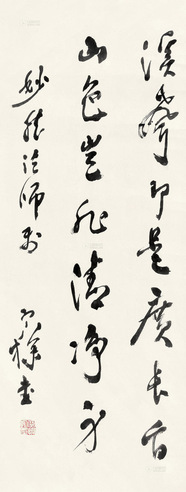 溪聲即是廣長舌
山色豈非清淨身
妙然法師
書